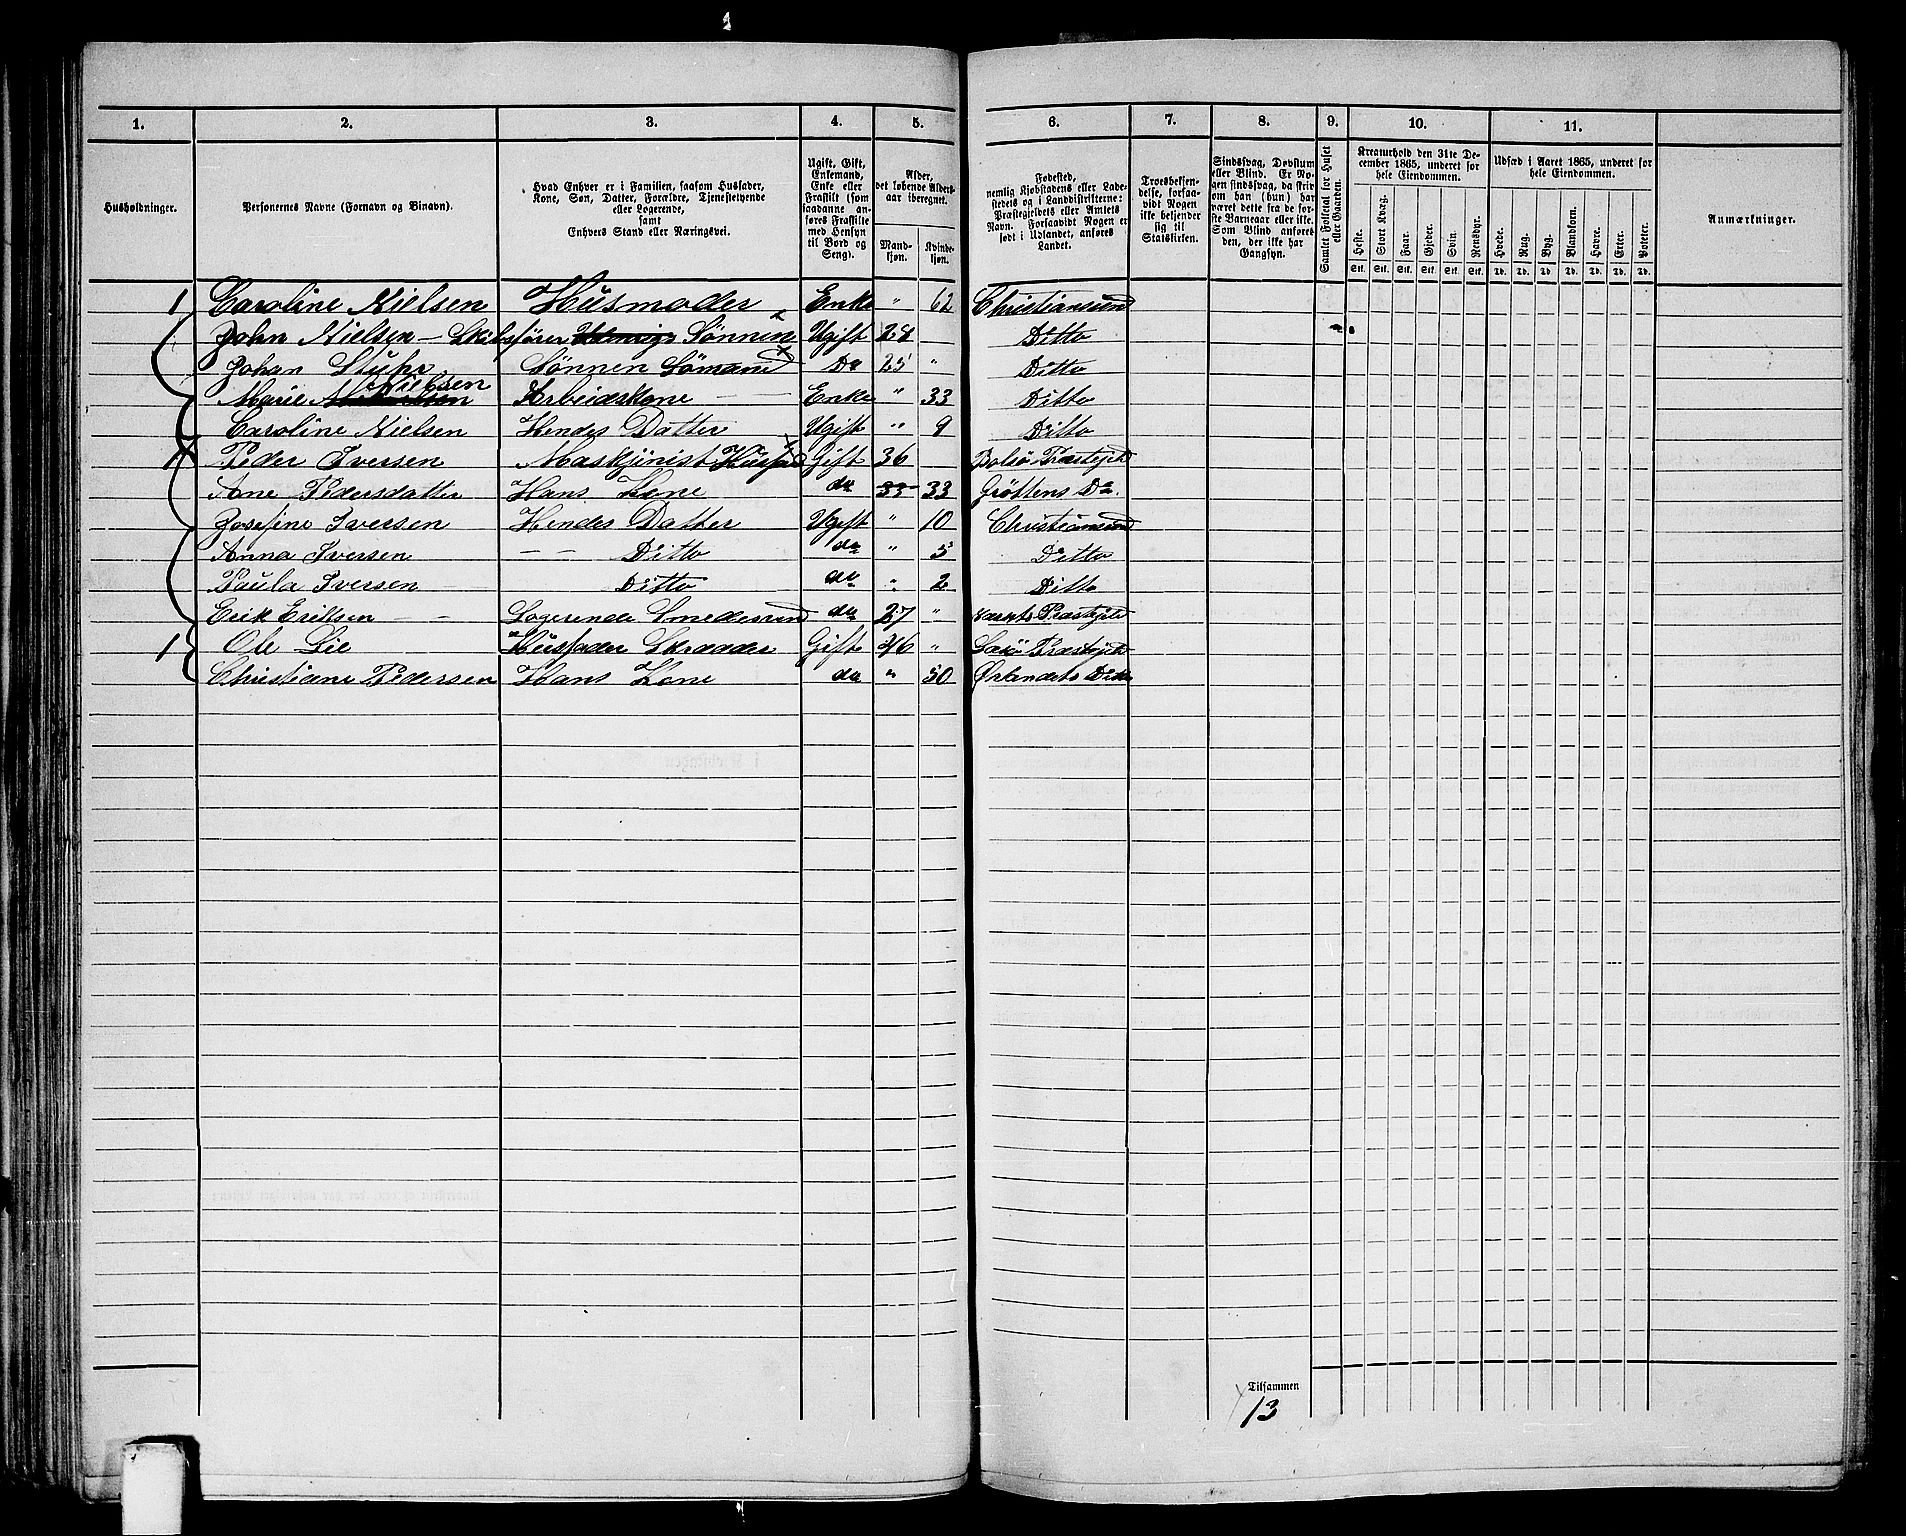 1. 2. 3. 4. 5. 6. 7. 8. 9. 10. 11.
Husholdninger.
Personernes Navne (Fornavn og Binavn).
Hvad Enhver er i Familien, saasom Husfader,
Kone, Søn, Datter, Forældre, Tjenestetyende
eller Logerende,
samt
Enhvers Stand eller Næringsvei.
Ugift, Gift,
Enkemand,
Enke eller
Fraskilt (som
saadanne an-
føres Fraskilte
med Hensyn
til Bord og
Seng).
Alder,
det løbende Alders-
aar iberegnet.
Mand-
kjøn.
Kvinde-
kjøn.
Fødested,
nemlig Kjøbstadens eller Lade-
stedets og i Landdistrikterne:
Præstegjeldets eller Amtets
Navn. Forsaavidt Nogen er
født i Udlandet, anføres
Landet.
Troesbekjen-
delse, forsaa-
vidt Nogen
ikke bekjender
sig til
Statskirken.
Sindssvag, Døvstum
eller Blind. Er No-
gen sindssvag, da skri-
ves om han (hun) har
været dette fra de før-
ste Barneaar eller ikke.
Som Blind anføres
den, der ikke har
Gangsyn.
Samlet Folketal for Huset
eller Gaarden.
Kreaturhold den 31te De-
cember 1865, underet for
hele Eiendommen.
Heste. Stort Kvæg. Faar. Gjeder. Svin. Rensdyr.
Stk. Stk. Stk. Stk. Stk. Stk.
Udsæd i Aaret 1865, underet for
hele Eiendommen.
Hvede. Rug. Byg. Blandkorn. Havre. Erter. Poteter.
Td. Td. Td. Td. Td. Td. Td.
Anmærkninger.
1 Caroline Nielsen Husmoder Enke " 62 Christiansund
John Nielsen - Skibsfører Sønnen Ugift 28 Ditto
Johan Stuhr Sønnen Sømand Do 25 " Ditto
Marie Nielsen Arbeidskone Enke " 33 Ditto
Caroline Nielsen Hendes Datter Ugift " 9 Ditto
1 Peder Iversen Maskjinist Husfad Gift 36 Bolsø Præstegjeld
Ane Pedersdatter Hans Kone do 33 33 Grøttens Do.
Josefine Iversen Hendes Datter Ugift " 10 Christiansund
Anna Iversen - - Ditto do " 5 Ditto
Paula Iversen Ditto do " 2 Ditto
Erik Eriksen Logerende Smedesvend do 27 " Præstegjeld
1 Ole Lie Husfader Skrædder Gift 46 " Præstegjeld
Christiane Pedersen Hans Kone do " 50 Ørlandets Ditto
Tilsammen
13